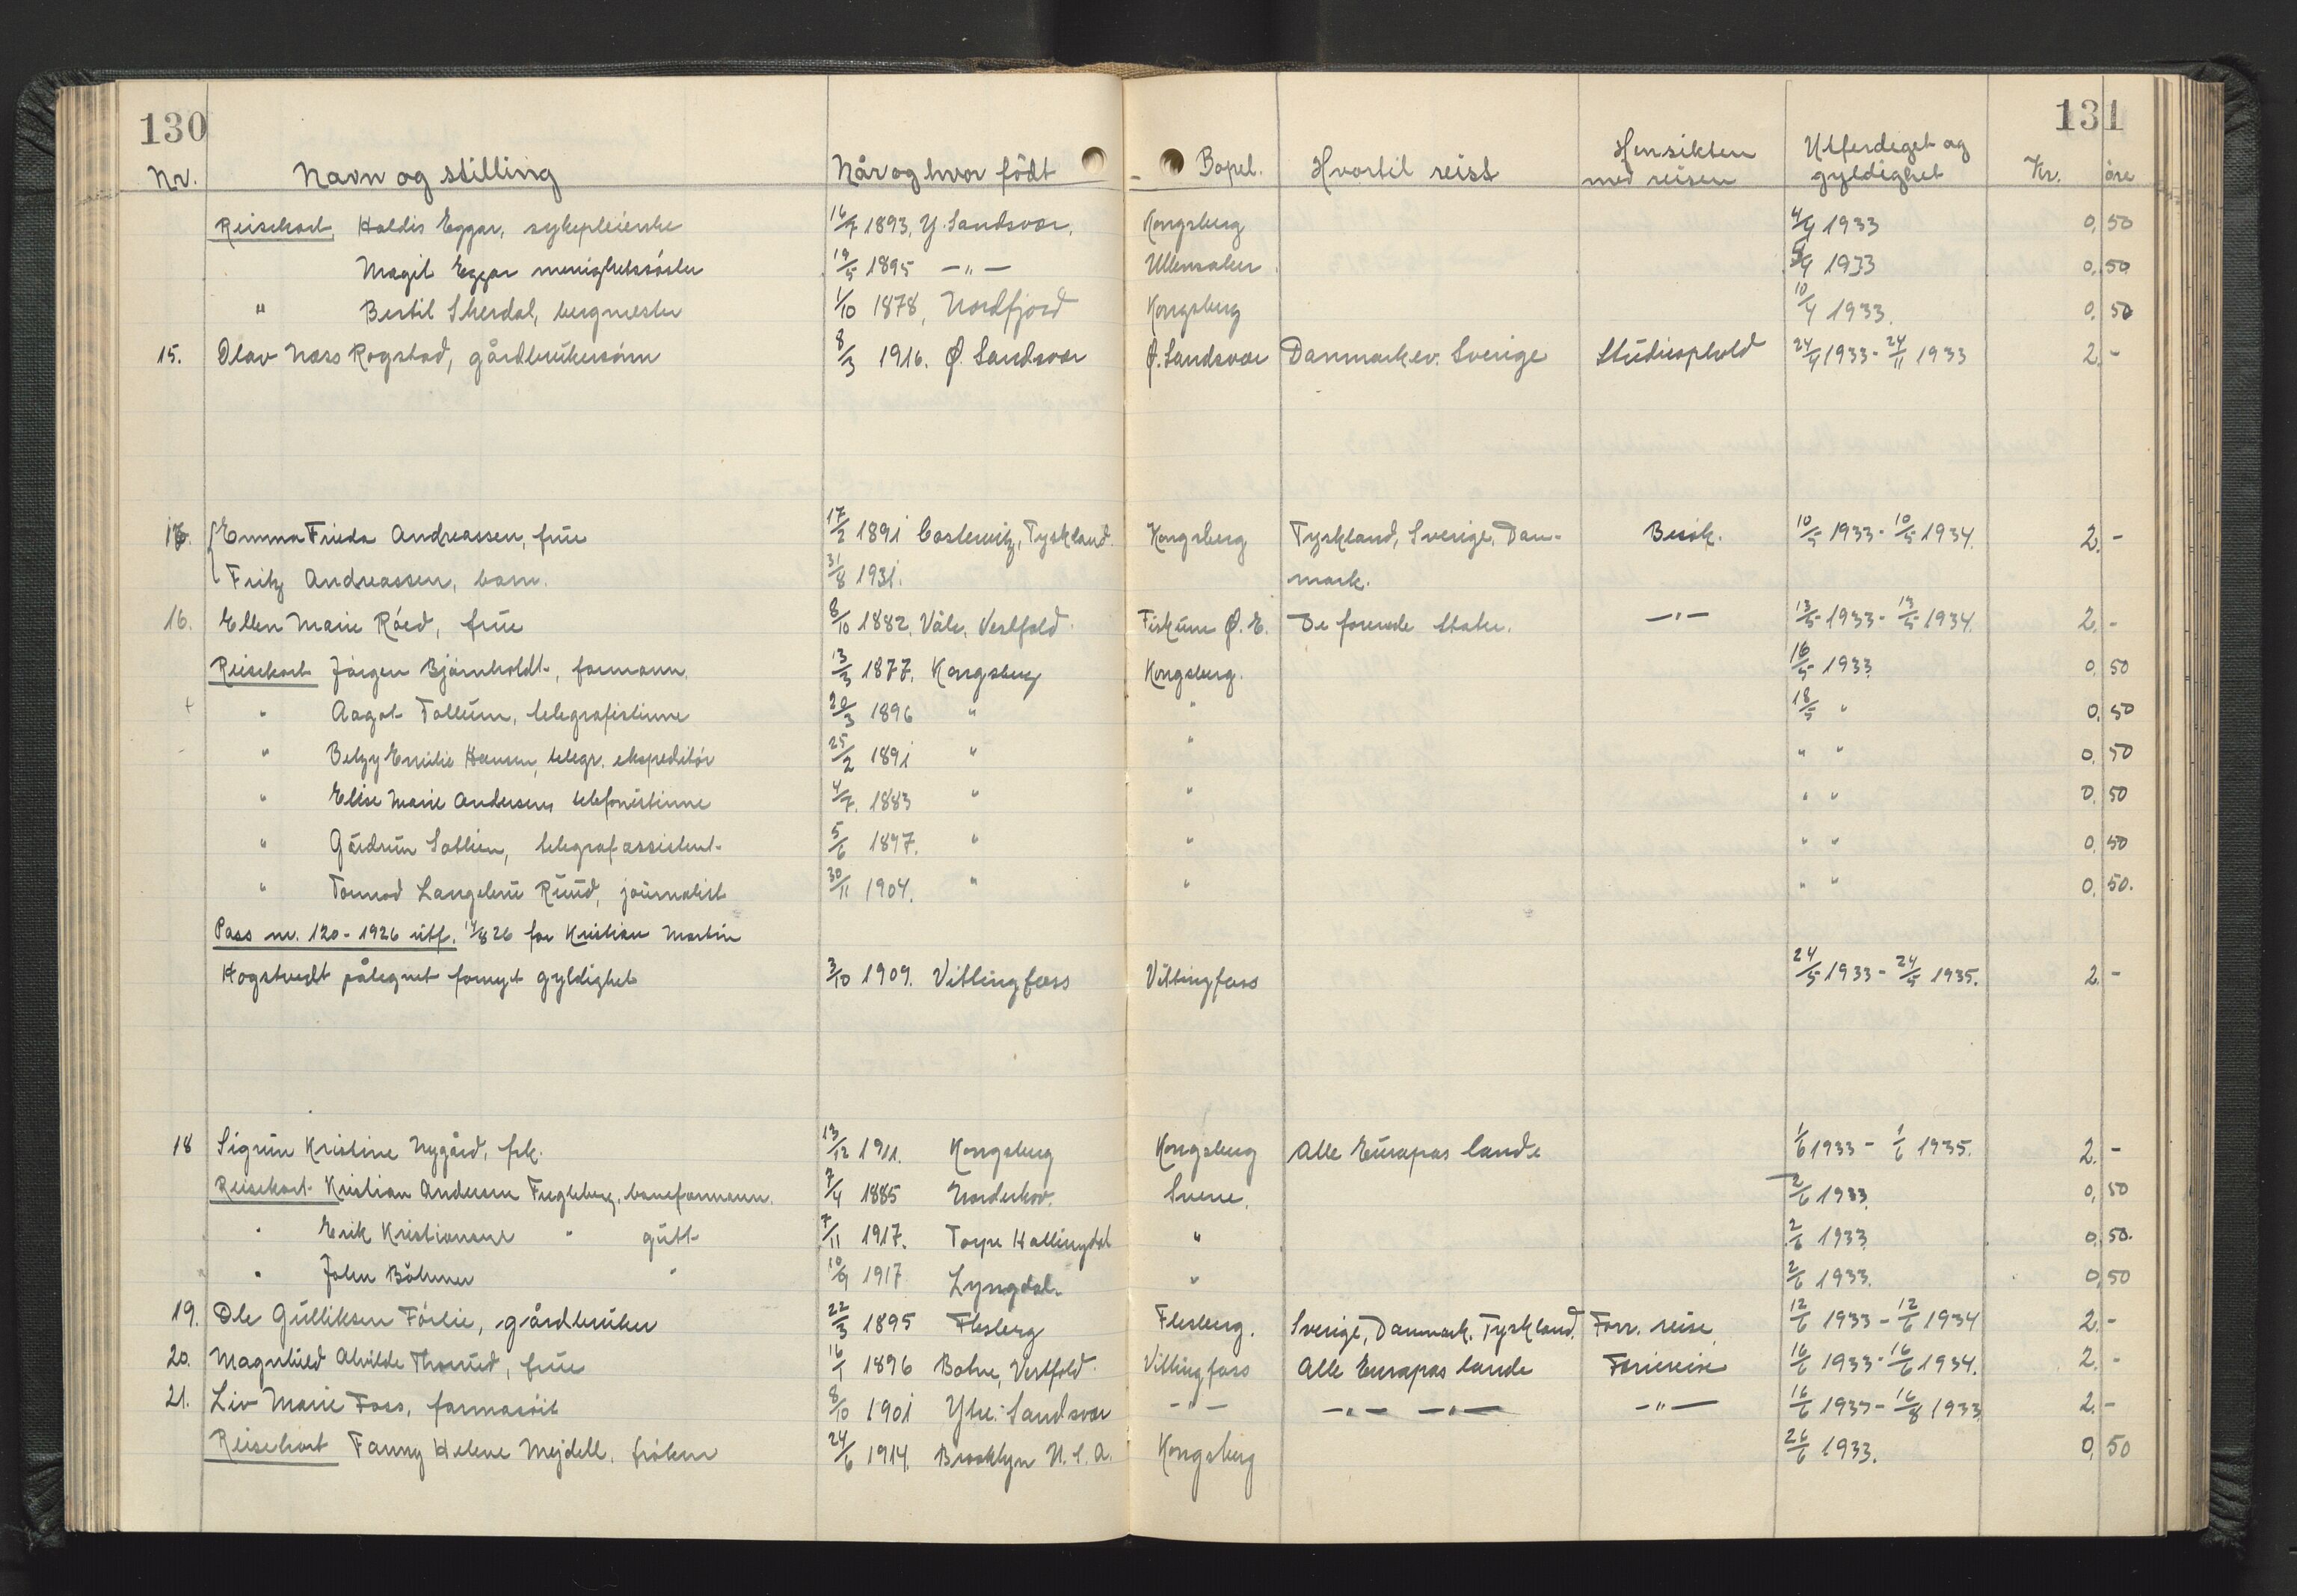 130 131
Nr. Navn og stilling Når og hvor født Bopel. Hvortil reist Hensikten med reisen Utferdiget og gyldighet Kr. øre
Reisekort Haldis Eggar, sykepleierske 16/7 1893, Y. Sandsvær, Kongsberg 4/4 1933 0, 50
Magil Eggar menighetssøster 19/5 1895 -"- Ullensaker 5/4 1933 0, 50
" Bertil Stordal, bergmester 1/10 1878, Nordfjord Kongsberg 10/4 1933. 0. 50
15. Olav Næss Rogstad, gårdbrukersønn 8/3 1916. Ø. Sandsvær Ø. Sandsvær Danmark ev. Sverige Studieophold 24/4 1933 - 24/11 1933 2. -
Emma Frieda Andreassen, frue 17/2 1891 Coslewitz, Tyskland. Kongsberg Tyskland, Sverige, Dan- Besøk. 10/5 1933 - 10/5 1934. 2. -
Fritz Andreassen, barn. 31/8 1931. mark.
16. Ellen Marie Røed, frue 8/10 1882, Våle, Vestfold. Fiskum Ø. E. De forenede Stater. -"- 13/5 1933 - 13/5 1934. 2. -
Reisekort Jørgen Bjørnholdt, formann. 13/3 1877. Kongsberg Kongsberg. 16/5 1933 0. 50
" Aagot Tollum, telegrafistinne 20/3 1896 " " 18/5 " 0. 50
" Betzy Emilie Hansen, telegr. ekspeditør 25/2 1891 " " " " 0. 50
" Elise Marie Andersen, telefonistinne 4/7. 1883 " " " " 0. 50
" Gudrun Sollien, telegrafassistent 5/6 1897. " " " " 0. 50
" Tormod Langelerud Ruud, journalist 30/11 1904. " " " " 0. 50.
Pass nr. 120 - 1926 utf. 14/8 26 for Kristian Martin
Hogstvedt påtegnet fornyet gyldighet 3/10 1909. Vittingfoss Vittingfoss 24/5 1933 - 24/5 1935. 2. -
18 Sigrun Kristine Nygård, frk. 13/12 1911. Kongsberg Kongsberg Alle Europas lande 1/6 1933 - 1/6 1935. 2. -
Reisekort Kristian Andersen Fugleberg, baneformann. 7/4 1885 Norderhov. Svene. 2/6 1933. 0, 50
" Erik Kristiansen " gutt 7/11 1917. Torpe Hallingdal " 2/6 1933. 0. 50.
" John Bøhmer " 10/9 1917 Lyngdal. " 2/6 1933. 0, 50
19. Ole Gulliksen Førlie, gårdbruker 22/3 1895 Flesberg Flesberg. Sverige, Danmark, Tyskland. Forr. reise 12/6 1933 - 12/6 1934 2. -
20. Magnhild Alvilde Thorud, frue 16/1 1896 Botne, Vestfold. Vittingfoss Alle Europas lande Feriereise 16/6 1933 - 16/6 1934. 2. -
21. Liv Marie Foss, farmasøit 8/10 1901 Ytre Sandsvær -"- -"- -"- -"- 16/6 1933 - 16/8 1933 2. -
Reisekort Fanny Helene Mejdell, frøken 24/6 1914. Brooklyn U. S. A. Kongsberg 26/6 1933. 0, 50